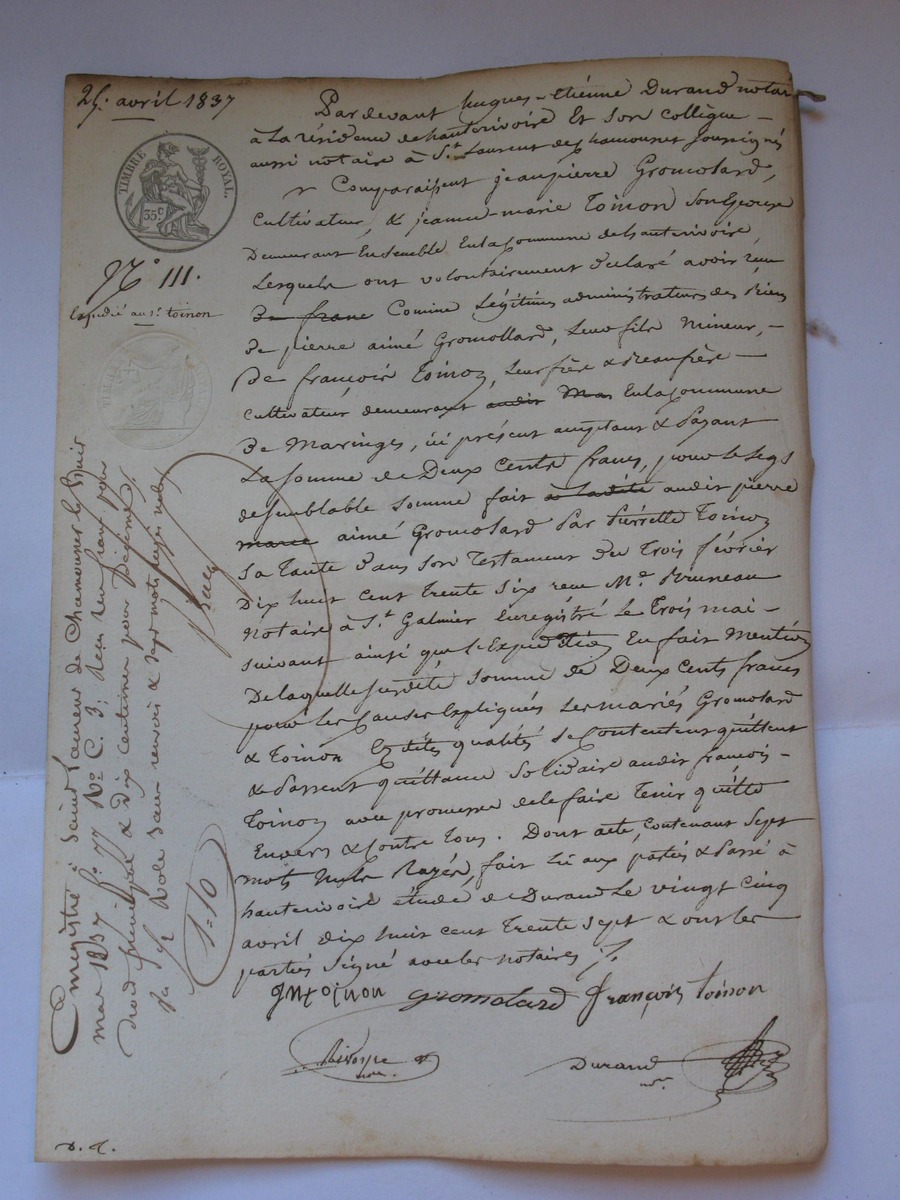 25. avril 1837
TIMBRE ROYAL.
35c
N° 111.
Expédié au sr. toinon
Pardevant hugues-étienne Durand notai
à La résidence de hauterivoire Et son collègue —
aussi notaire à St. Laurent de Chamousset soussignés
Comparaissent jeanpierre Gromolard,
Cultivateur, & jeanne-marie Toinon son Epouse
Demeurant Ensemble En la Commune de hauterivoire,
Lesquels ont volontairement déclaré avoir reçu
De franc Comme Légitimes administrateurs des Biens
De pierre aimé Gromollard, Leur fils Mineur, —
De françois Toinon, Leur frère & Beaufrère —
Cultivateur demeurant audit Mar En la Commune
De Maringes, ici présent acceptant & Payant
La somme de Deux Cents francs, pour le Legs
de semblable somme fait à ladite audit pierre
marie aimé Gromolard Par Pierrette Toinon
Sa Tante Dans son Testament du Trois février
Dix huit Cent Trente Six reçu Me. Bruneau
Notaire à St. Galmier Enregistré Le Trois mai —
suivant ainsi que l'Expédition En fait Mention
De laquelle susdite somme de Deux Cents francs
pour les Causes Expliquées Les mariés Gromolard
& Toinon Es dites qualités se Contentent quittent
& Passent quittance solidaire audit françois-
Toinon avec promesse de le faire Tenir quitte
Envers & Contre Tous. Dont acte, Contenant Sept
mots Nuls Rayés, fait Lu aux parties & Passé à
hauterivoire étude de Durand Le vingt Cinq
avril Dix huit cent Trente Sept & ont les
parties Signé avec les notaires
Enregistré à Saint Laurent de Chamousset le huit
mai 1837 f° 77 R° C. 3; Reçu un franc pour
droit principal & dix centimes pour Décime.
un Role sans renvoi & Sept mots rayés nuls
1=10
JM toinon
Gromolard
François toinon
Durand
nre
D. d.